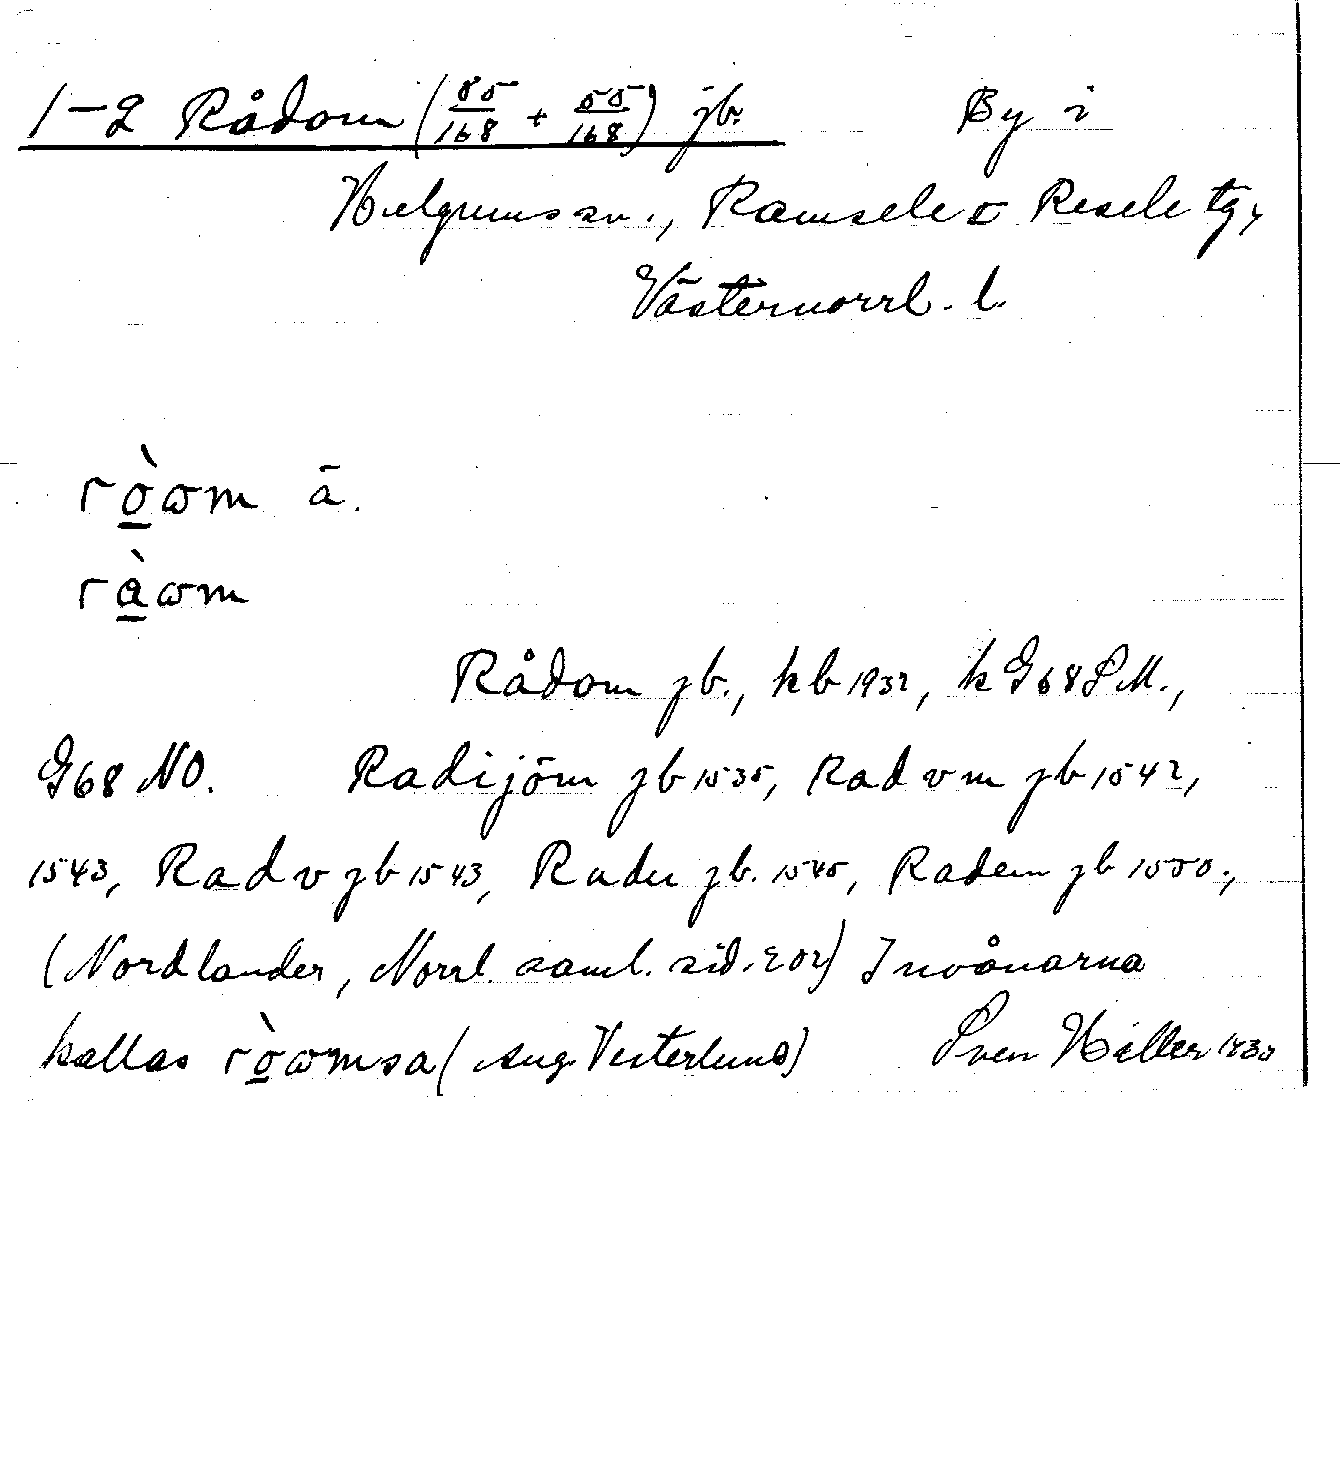 1-2 Rådom (85/168 + 55/168) jb. By i
Helgums sn., Ramsele o Resele tg,
Västernorrl. l.
ròωm ā.
ràωm
Rådom jb., kb 1932, k G68 SM.,
G68 NO. Radijõm jb 1535, Radvm jb 1542,
1543, Radv jb 1543, Radu jb. 1545, Radem jb 1550.,
(Nordlander, Norrl. saml. sid. 202) Invånarna
kallas ròωmsa (Aug. Vesterlund) Sven Hiller